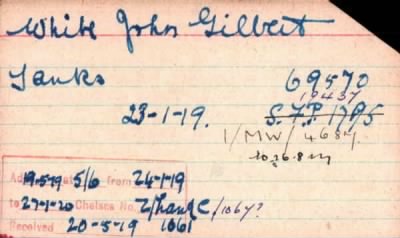 White John Gilbert
Tanks 69570
19437
23-1-19. S.T.P. 1795
1/MW/4684
10.16.8.
19-5-19 5/6 from 24-1-19
to 27-1-20 Chelsea No. 2/ /1067?
Received 20-5-19 1061